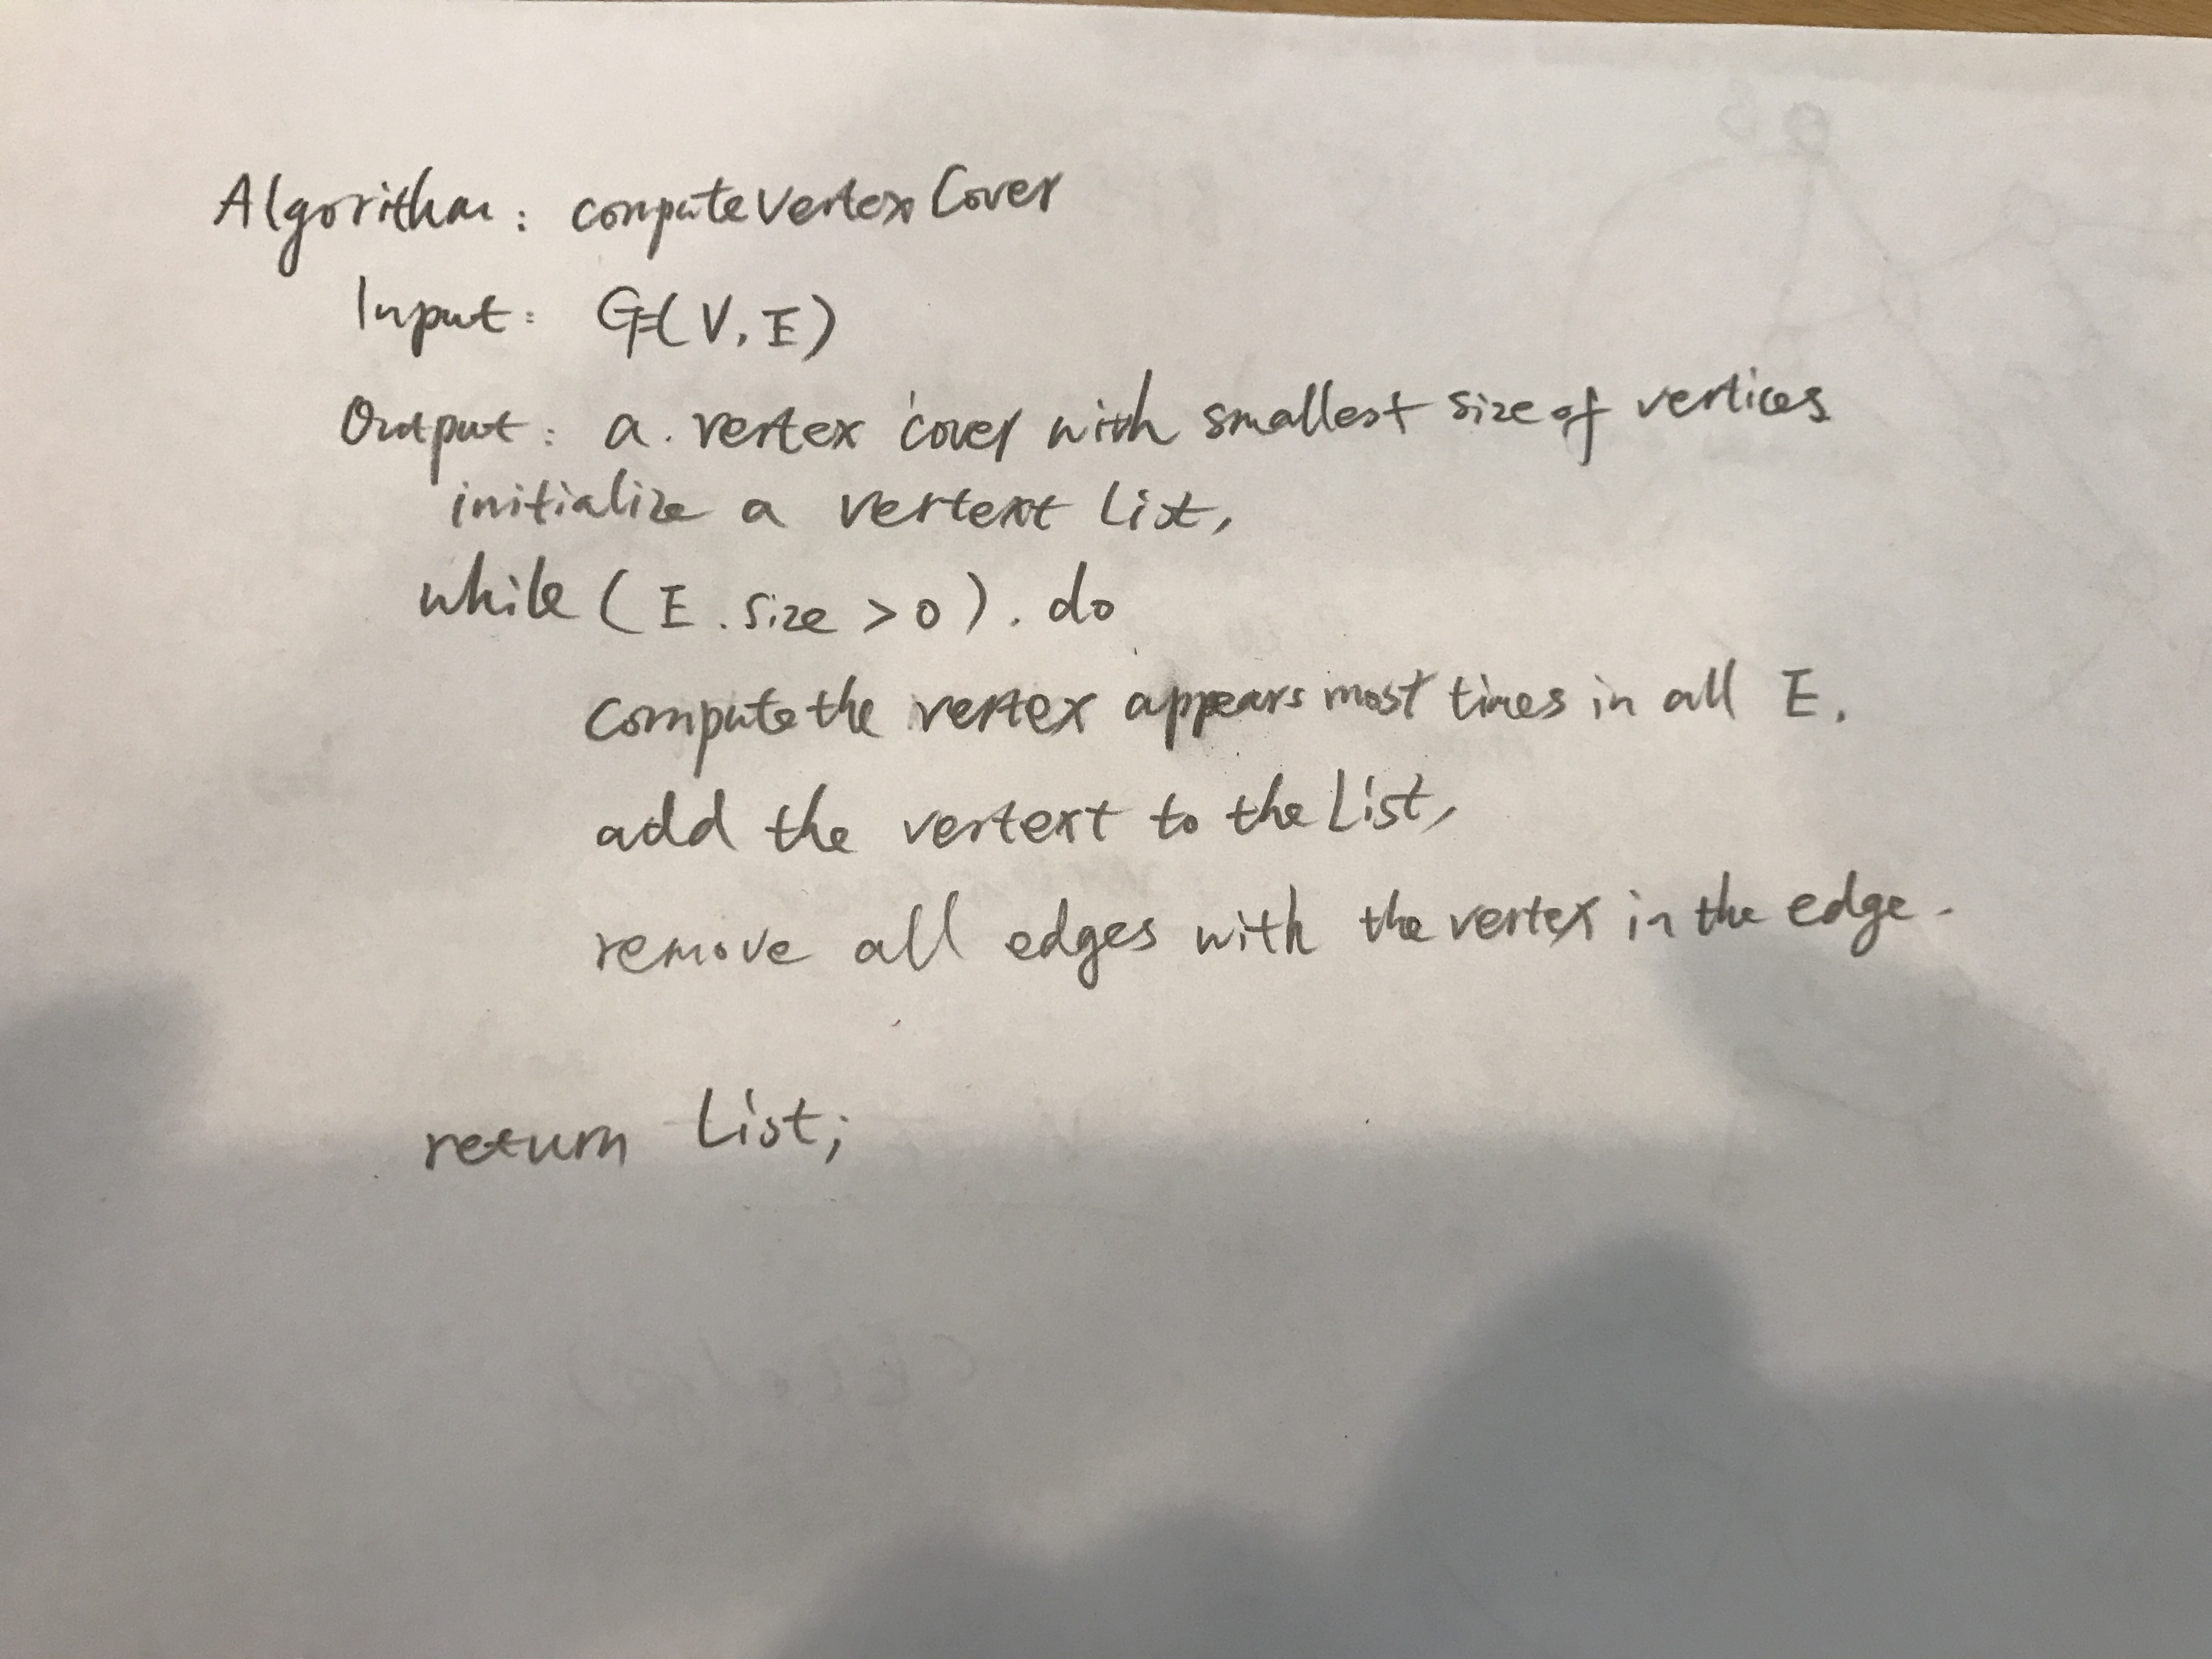 Algorithm: computeVertexCover
Input: G(V, E)
Output: a vertex cover with smallest size of vertices
initialize a vertext list,
while (E.size > 0). do
compute the vertex appears most times in all E,
add the vertext to the list,
remove all edges with the vertex in the edge.
return list;